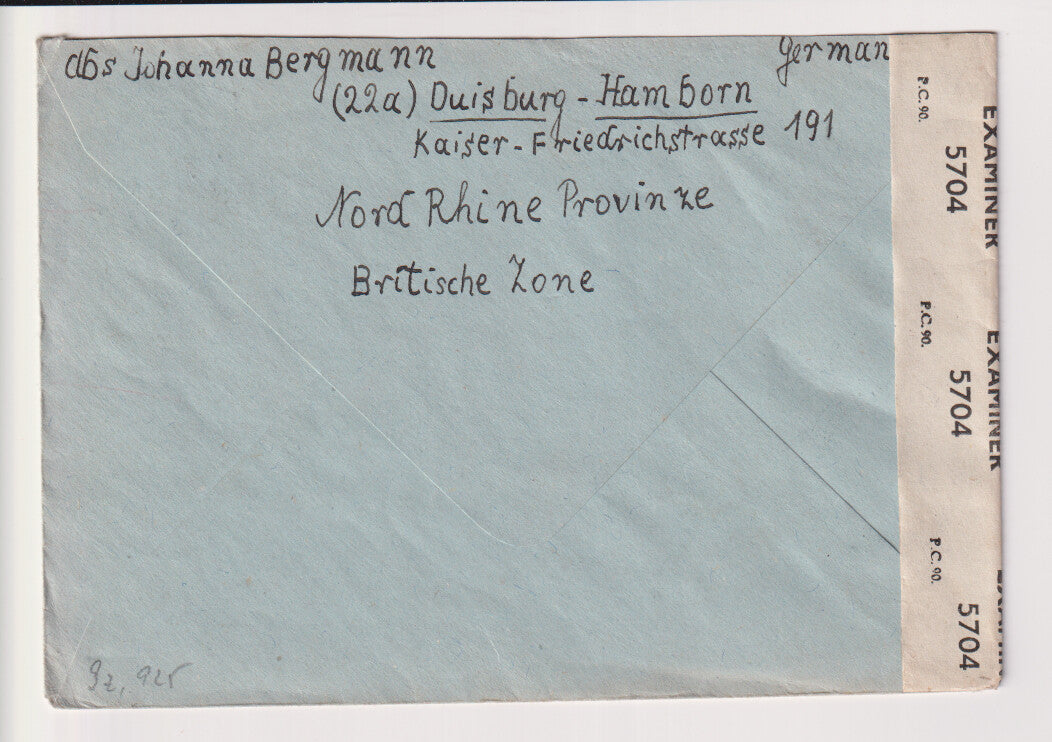 abs Johanna Bergmann German
(22a) Duisburg - Hamborn
Kaiser - Friedrichstrasse 191
Nord Rhine Provinze
Britische Zone
P.C. 90.
EXAMINER
5704
P.C. 90.
EXAMINER
5704
P.C. 90.
5704